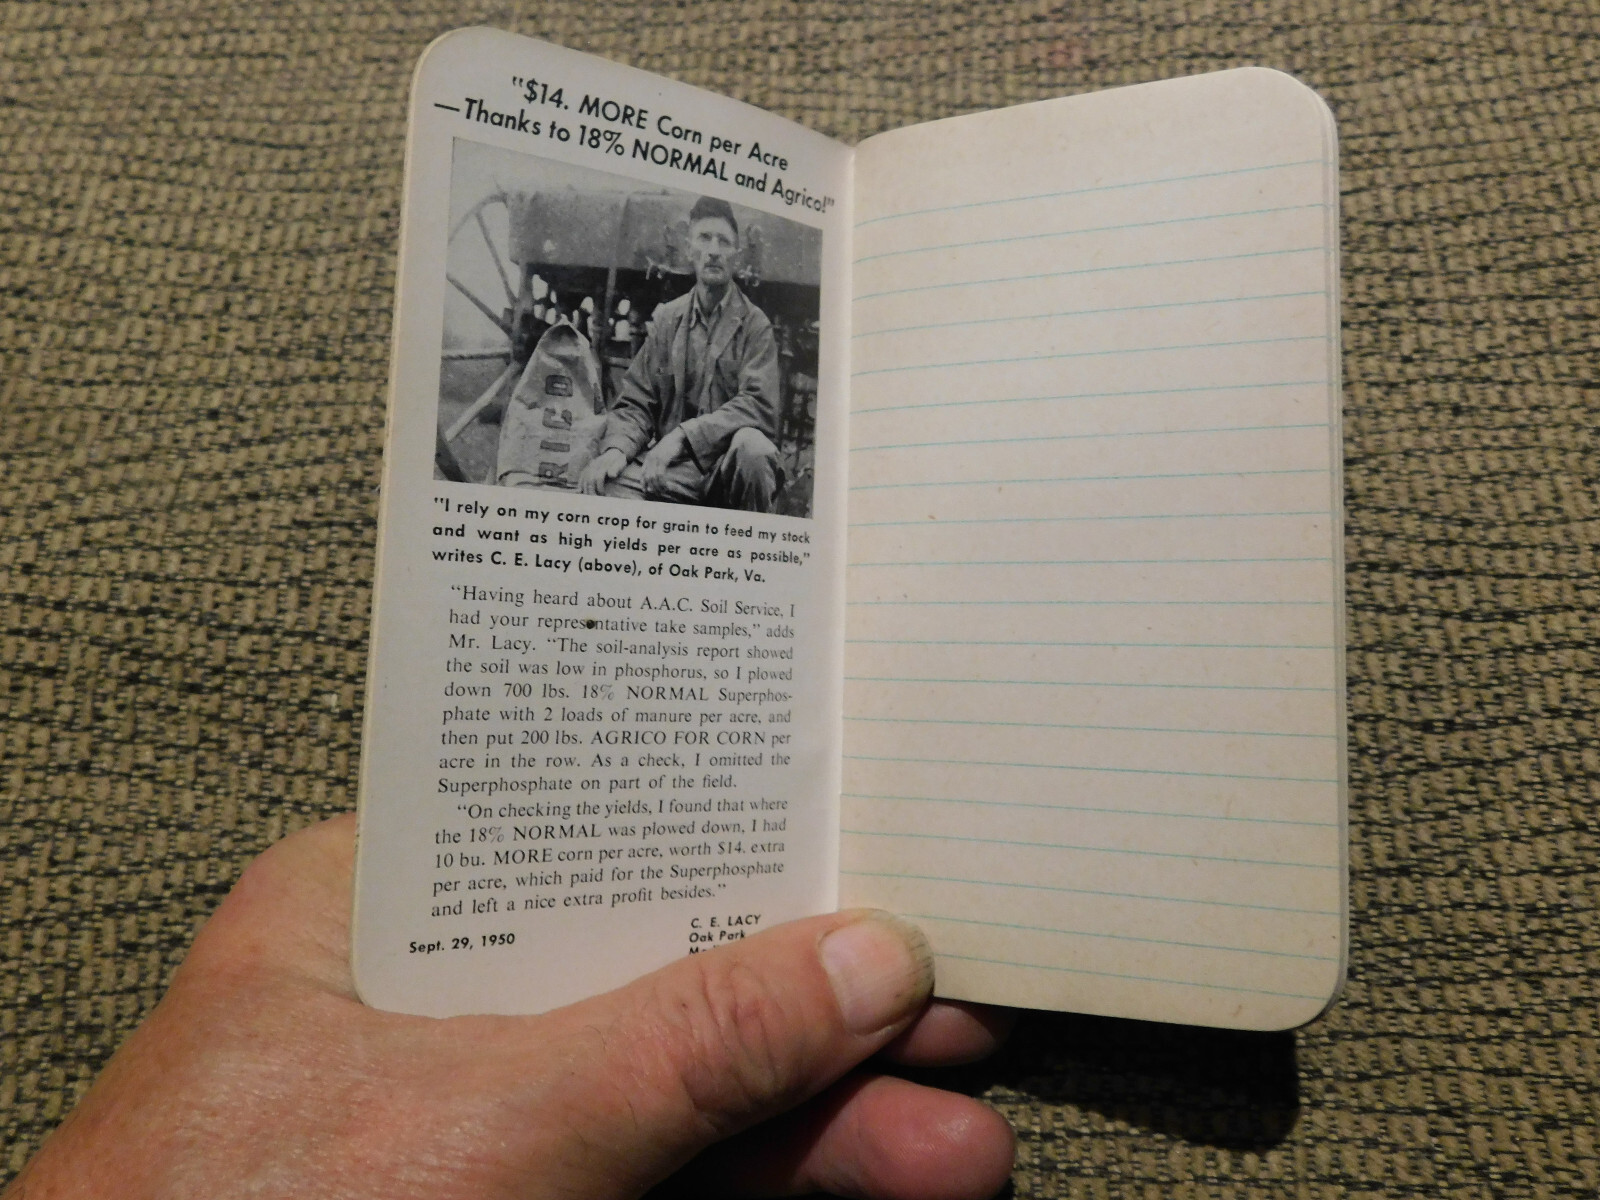 "$14. MORE Corn per Acre
—Thanks to 18% NORMAL and Agrico!"
RICO
"I rely on my corn crop for grain to feed my stock
and want as high yields per acre as possible,"
writes C. E. Lacy (above), of Oak Park, Va.
"Having heard about A.A.C. Soil Service, I
had your representative take samples," adds
Mr. Lacy. "The soil-analysis report showed
the soil was low in phosphorus, so I plowed
down 700 lbs. 18% NORMAL Superphos-
phate with 2 loads of manure per acre, and
then put 200 lbs. AGRICO FOR CORN per
acre in the row. As a check, I omitted the
Superphosphate on part of the field.
"On checking the yields, I found that where
the 18% NORMAL was plowed down, I had
10 bu. MORE corn per acre, worth $14. extra
per acre, which paid for the Superphosphate
and left a nice extra profit besides."
Sept. 29, 1950
C. E. LACY
Oak Park